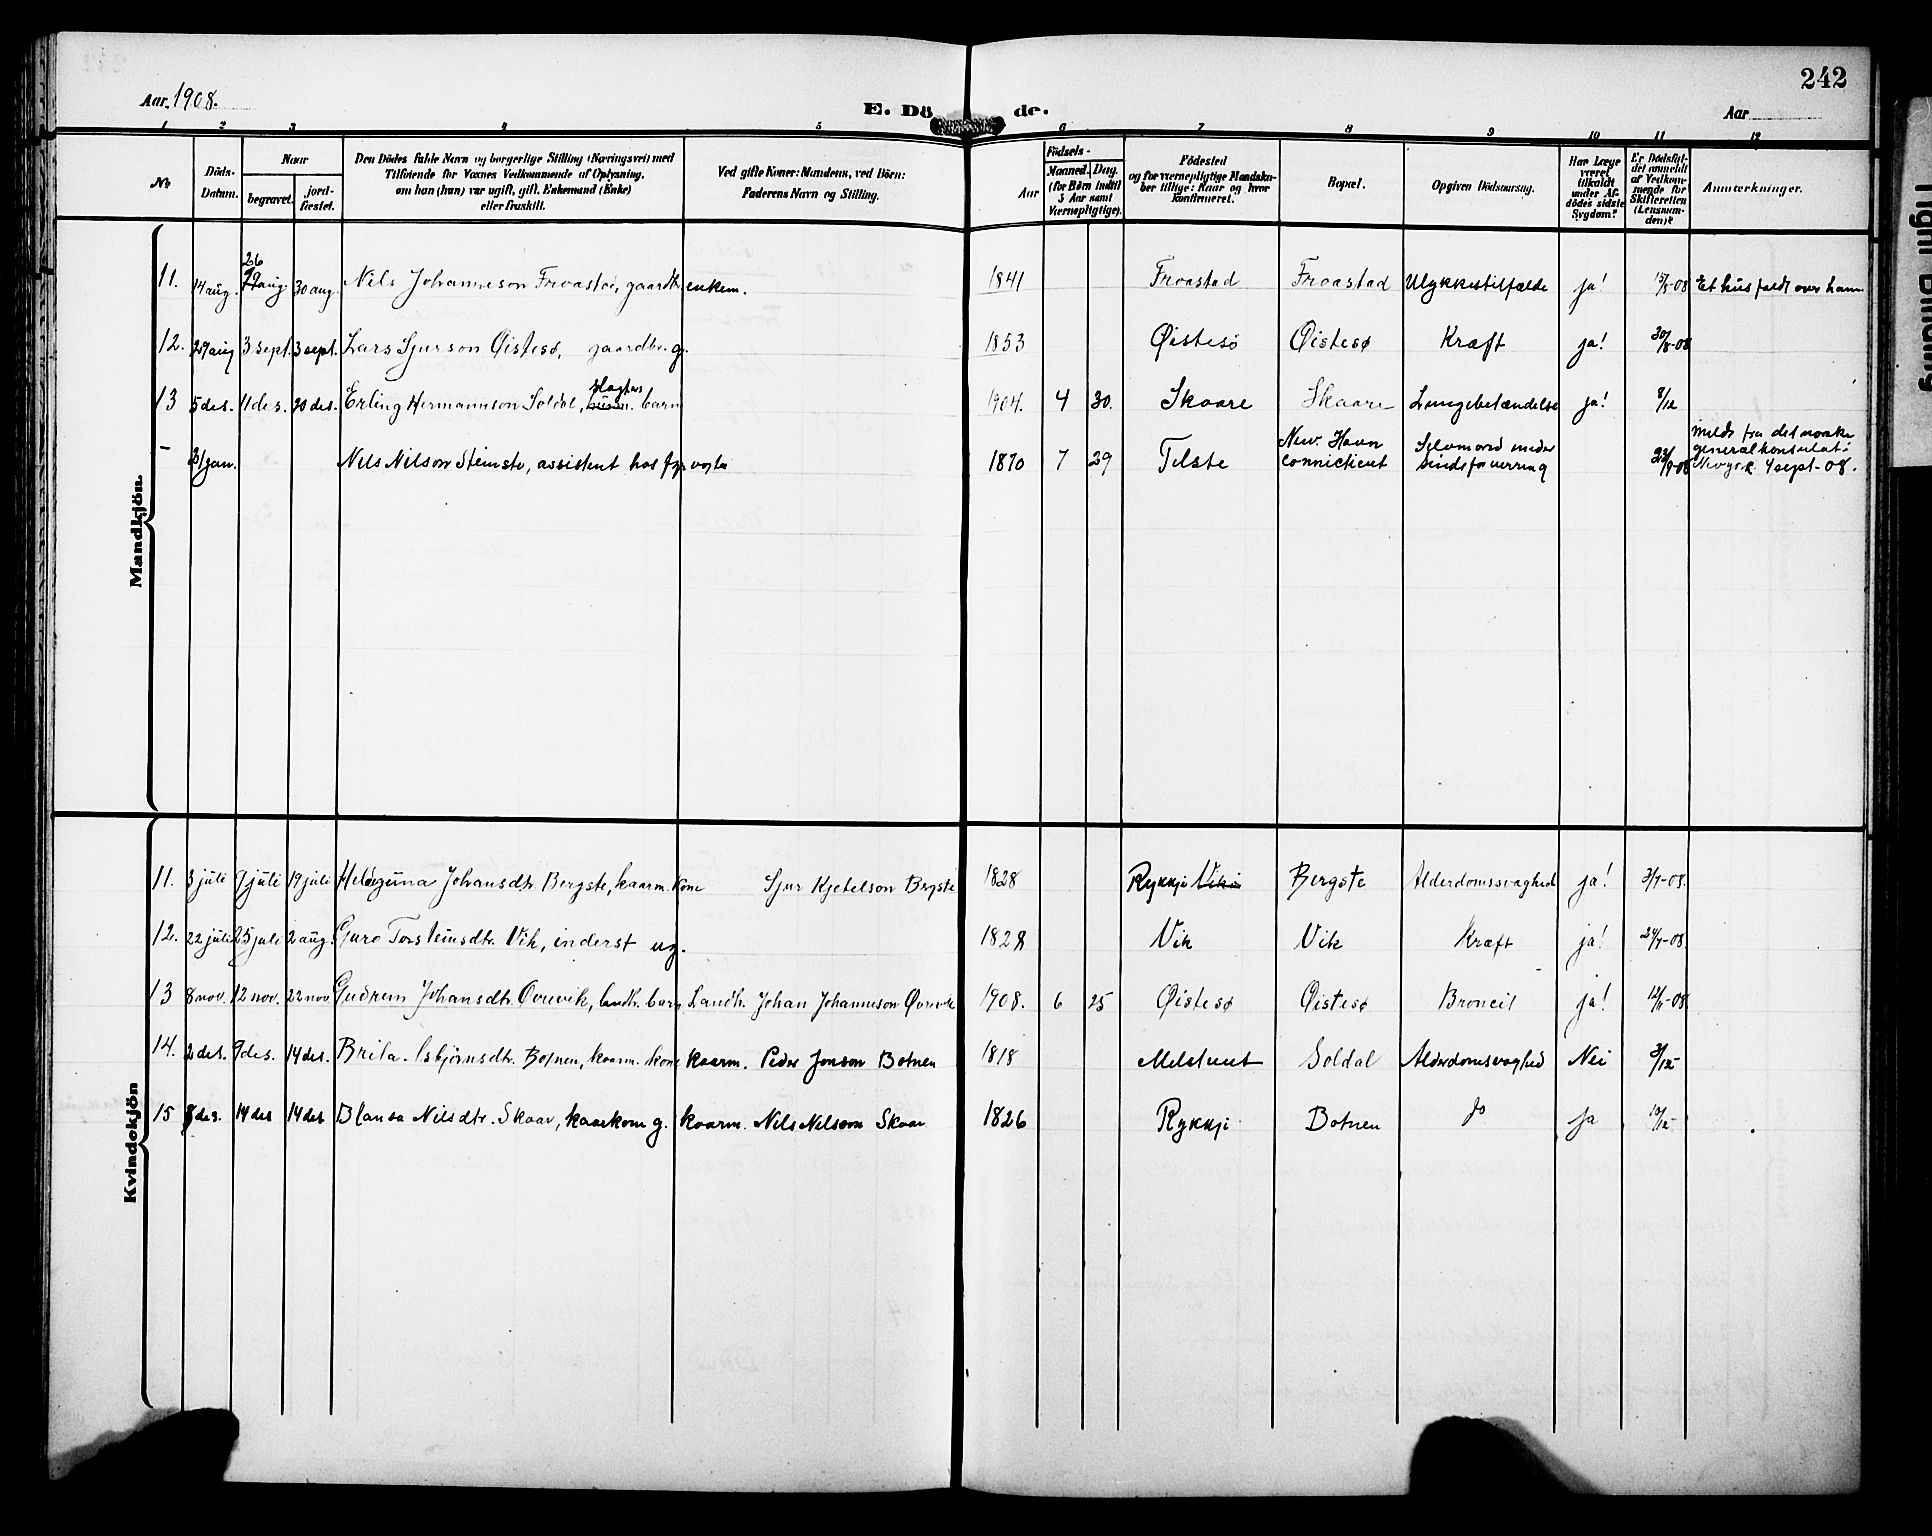 242
Aar 1908.
E. Dö de.
Aar
1 2 3 4 5 6 7 8 9 10 11 12
No
Döds-Datum.
Naar
begravet.
jord-fæstet.
Den Dödes fulde Navn og borgerlige Stilling (Næringsvei) med
Tilföiende for Voxnes Vedkommende af Oplysning,
om han (hun) var ugift, gift, Enkemand (Enke)
eller fraskilt.
Ved gifte Koner: Mandens, ved Börn:
Faderens Navn og Stilling.
Födsels-
Aar
Maaned. Dag.
(for Børn indtil
5 Aar samt
Værnepligtige).
Födested
og for værnepligtige Mandska-
ber tillige: Naar og hvor
konfirmeret.
Bopæl.
Opgiven Dödsaarsag.
Har Læge
været
tilkaldt
under Af-
dödes sidste
Sygdom?
Er Dödsfal-
det anmeldt
af Vedkom-
mende for
Skifteretten
(Lensman-
den)?
Anmærkninger.
Mandkjön.
26
11. 14 aug. aug. 30 aug. Nils Johanneson Froastø, gaardb. enkem. 1841 Froastad Froastad Ulykkestilfælde ja! 15/8-08 Et hus faldt over ham
12. 29 aug 3 sept. 3 sept. Lars Sjurson Øistesø, gaardbr. g. 1853 Øistesø Øistesø Kræft ja! 30/8-08
slagters
13 5 des. 11 des. 20 des. Erling Hermannson Soldal, barn 1904. 4 30. Skaare Skaare Lungebetændelse ja! 8/12
– 31 jan. Nils Nilson Steinstø, assistent hos fyrvogter 1870 7 29 Telste New Haven Connecticut Selvmord under Sindsforvirring 22/9-08 Meldt fra det norske generalkonsulat i Newyork 4 sept-08.
Kvindekjön
11. 3 juli 9 juli 19 juli Johansdtr. Bergstø, kaarm. kone Sjur Kjetelson Bergstø 1828 Rykkje Vikø Bergstø Alderdomssvaghed ja! 3/7-08.
12. 22 juli 25 juli 2 aug. Guro Torsteinsdtr. Vik, inderst ug. 1828 Vik Vik Kræft ja! 24/7-08
13 8 nov. 12 nov. 22 nov. Gudrun Johansdtr. Øvrevik, landh. barn Landh. Johan Johanneson Øvrevik 1908. 6 25 Øistesø Øistesø Broncit ja! 12/11-08
14. 2 des. 9 des. 14 des. Brita Asbjørnsdtr. Botnen, kaarm. kone kaarm. Peder Jonson Botnen 1818 Melstveit Soldal Alderdomsvaghed Nei 3/12
15 8 des. 14 des 14 des Nilsdtr. Skaar, kaarkone g. kaarm. Nils Nilsson Skaar 1826 Rykkje Botnen Do ja 10/12
Tight Binding